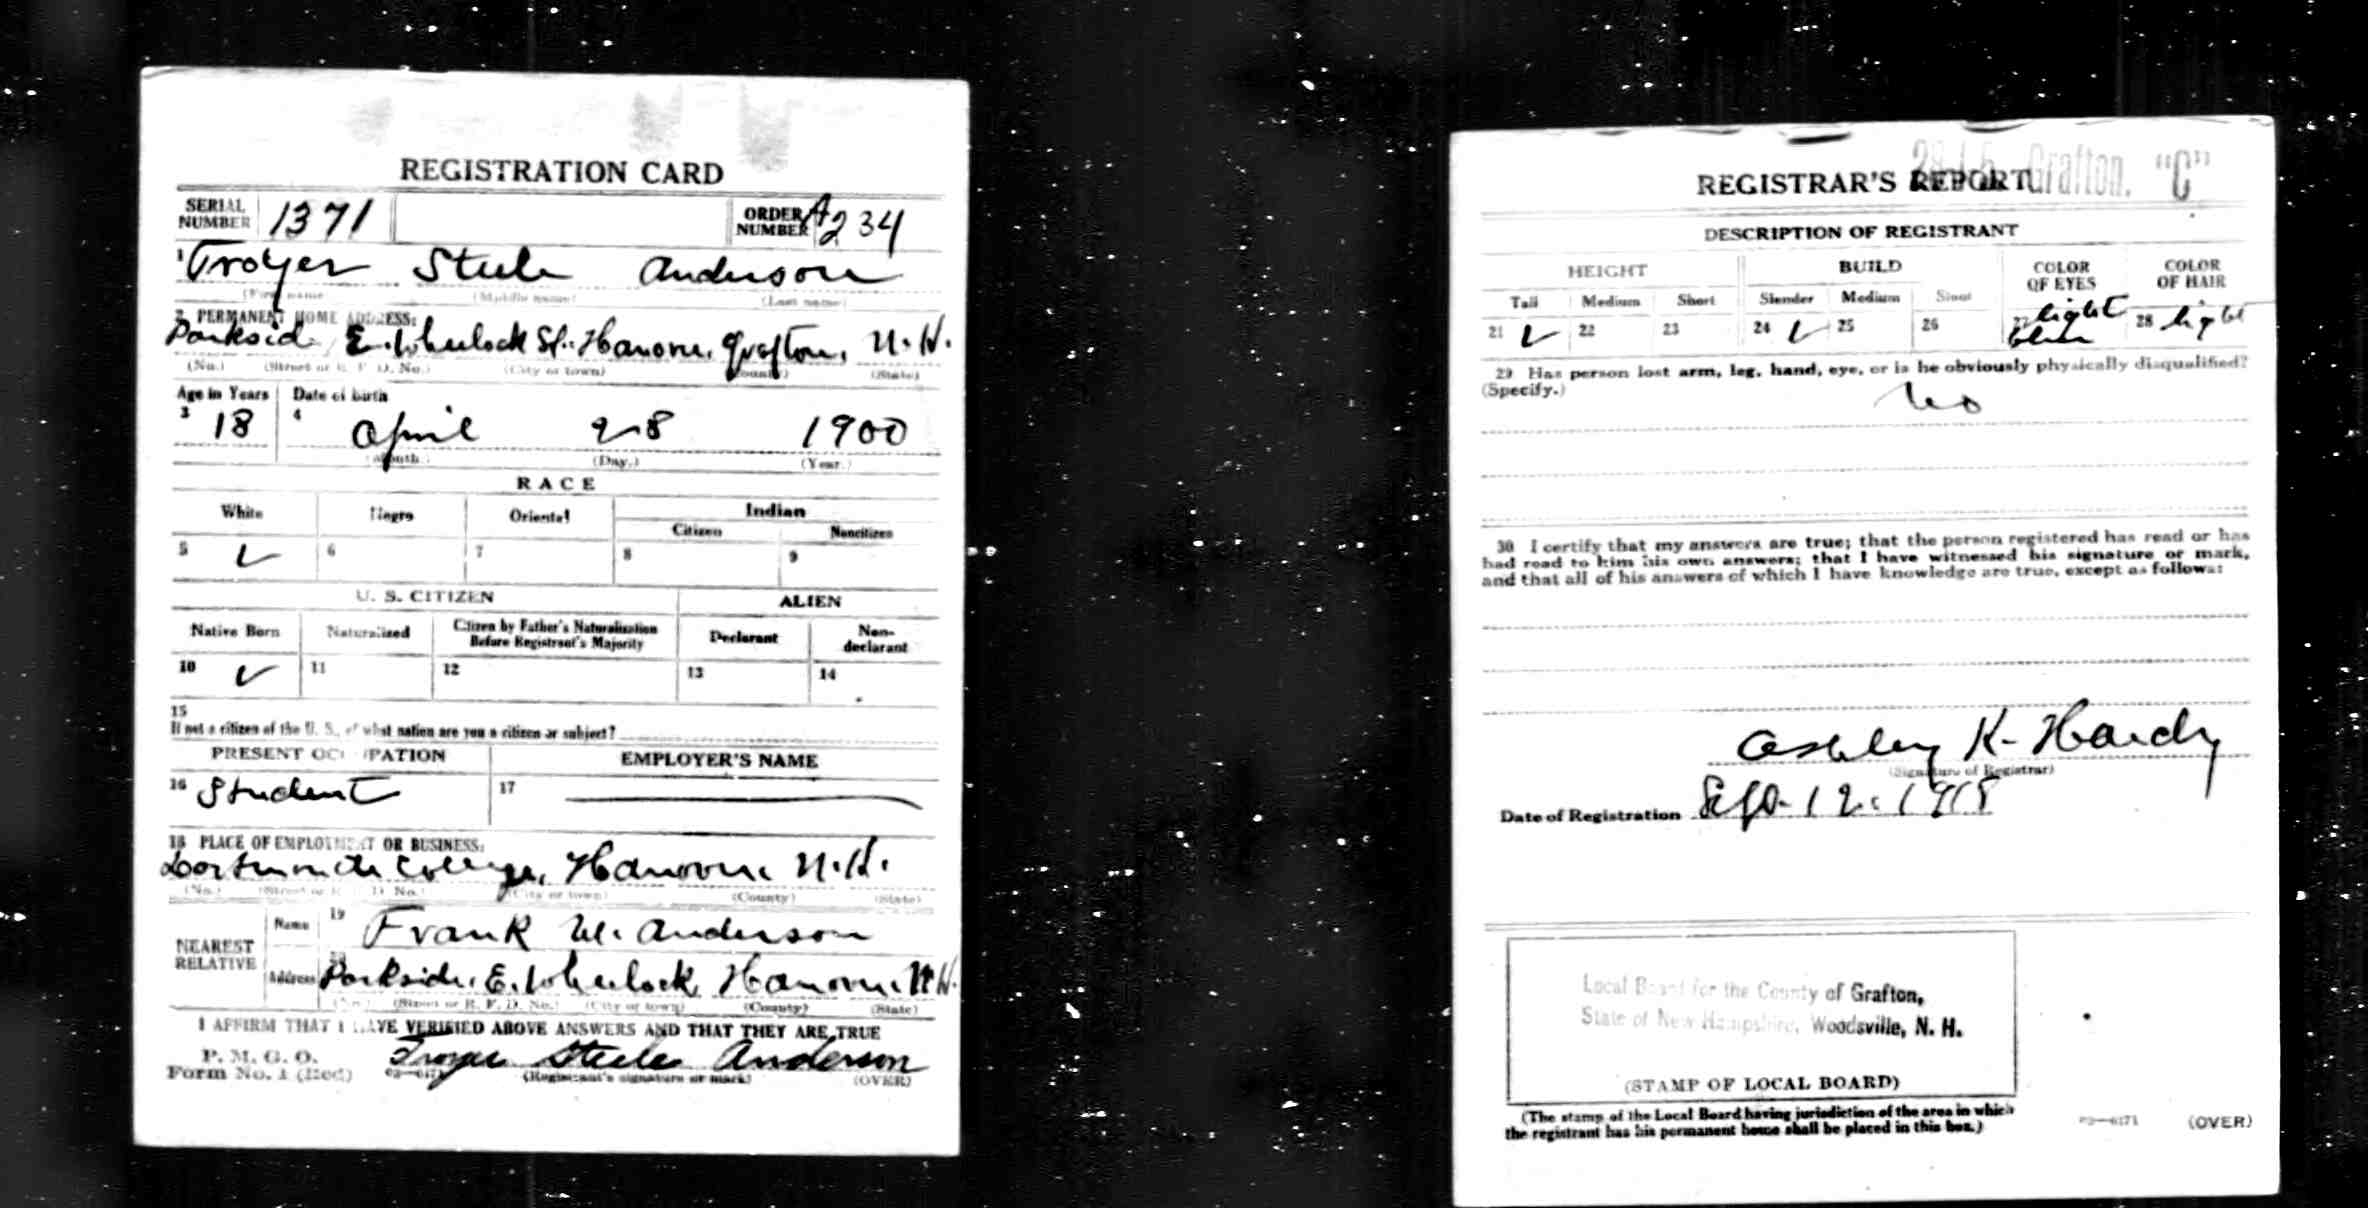 REGISTRATION CARD
SERIAL NUMBER 1371 ORDER NUMBER A234
1 Troyer Steele Anderson
(First name) (Middle name) (Last name)
2 PERMANENT HOME ADDRESS:
Parkside E. Wheelock St. Hanover, Grafton, N. H.
(No.) (Street or R. F. D. No.) (City or town) (County) (State)
Age in Years Date of birth
3 18 4 April 28 1900
(Month.) (Day.) (Year.)
RACE
White Negro Oriental Indian
Citizen Noncitizen
5 ✓ 6 7 8 9
U. S. CITIZEN ALIEN
Native Born Naturalized Citizen by Father's Naturalization Before Registrant's Majority Declarant Non-declarant
10 ✓ 11 12 13 14
15
If not a citizen of the U. S., of what nation are you a citizen or subject?
PRESENT OCCUPATION EMPLOYER'S NAME
16 Student 17
18 PLACE OF EMPLOYMENT OR BUSINESS:
Dartmouth College, Hanover, N. H.
(No.) (Street or R. F. D. No.) (City or town) (County) (State)
NEAREST RELATIVE
Name 19 Frank M. Anderson
Address 20 Parkside, E. Wheelock, Hanover, N. H.
(No.) (Street or R. F. D. No.) (City or town) (County) (State)
I AFFIRM THAT I HAVE VERIFIED ABOVE ANSWERS AND THAT THEY ARE TRUE
P. M. G. O.
Form No. 1 (Red) 03—6171 Troyer Steele Anderson
(Registrant's signature or mark) (OVER)
REGISTRAR'S REPORT
Grafton. "C"
DESCRIPTION OF REGISTRANT
HEIGHT BUILD COLOR OF EYES COLOR OF HAIR
Tall Medium Short Slender Medium Stout
21 ✓ 22 23 24 ✓ 25 26 27 light blue 28 light
29 Has person lost arm, leg, hand, eye, or is he obviously physically disqualified?
(Specify.) No
30 I certify that my answers are true; that the person registered has read or has
had read to him his own answers; that I have witnessed his signature or mark,
and that all of his answers of which I have knowledge are true, except as follows:
Ashley K. Hardy
(Signature of Registrar)
Date of Registration Sept. 12. 1918
Local Board for the County of Grafton,
State of New Hampshire, Woodsville, N. H.
(STAMP OF LOCAL BOARD)
(The stamp of the Local Board having jurisdiction of the area in which
the registrant has his permanent home shall be placed in this box.)
03—6171 (OVER)